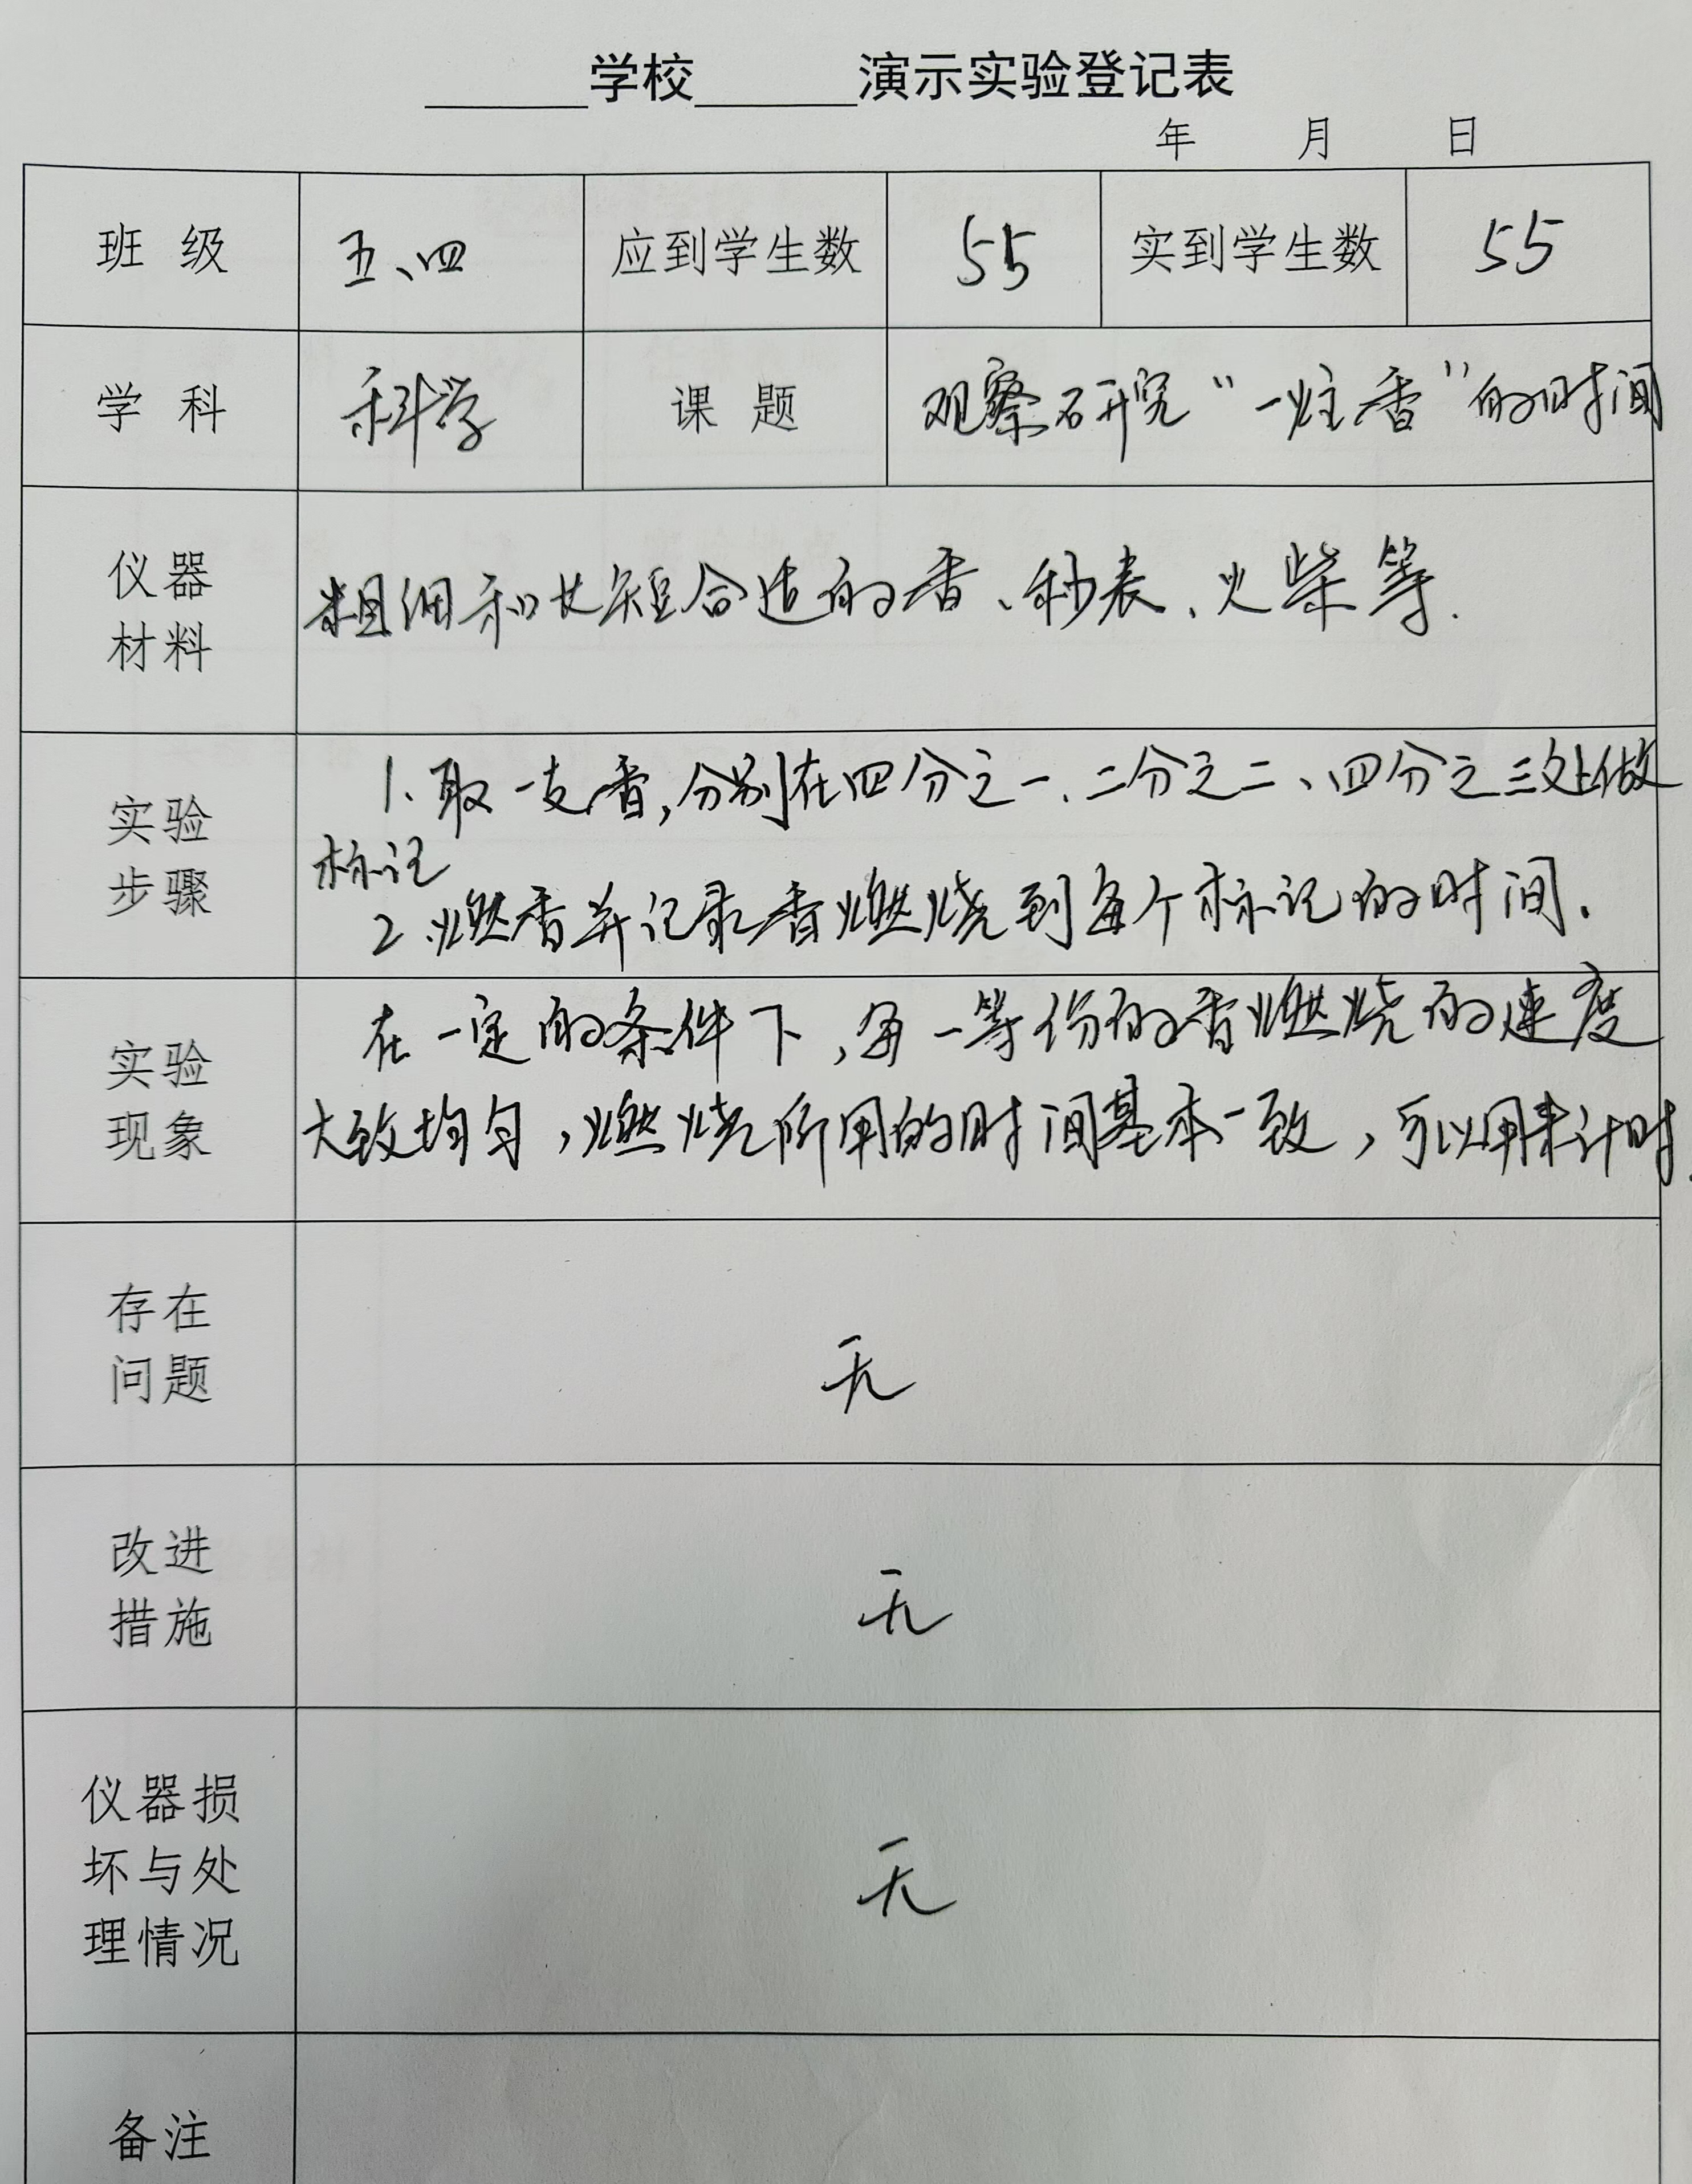 ______学校______演示实验登记表
年 月 日
班 级 五、四 应到学生数 55 实到学生数 55
学 科 科学 课 题 观察研究“一炷香”的时间
仪器
材料
粗细和长短合适的香、秒表、火柴等.
实验
步骤
1、取一支香,分别在四分之一、二分之二、四分之三处做
标记
2、燃香并记录香燃烧到每个标记的时间.
实验
现象
在一定的条件下,每一等份的香燃烧的速度
大致均匀,燃烧所用的时间基本一致,可以用来计时.
存在
问题
无
改进
措施
无
仪器损
坏与处
理情况
无
备注